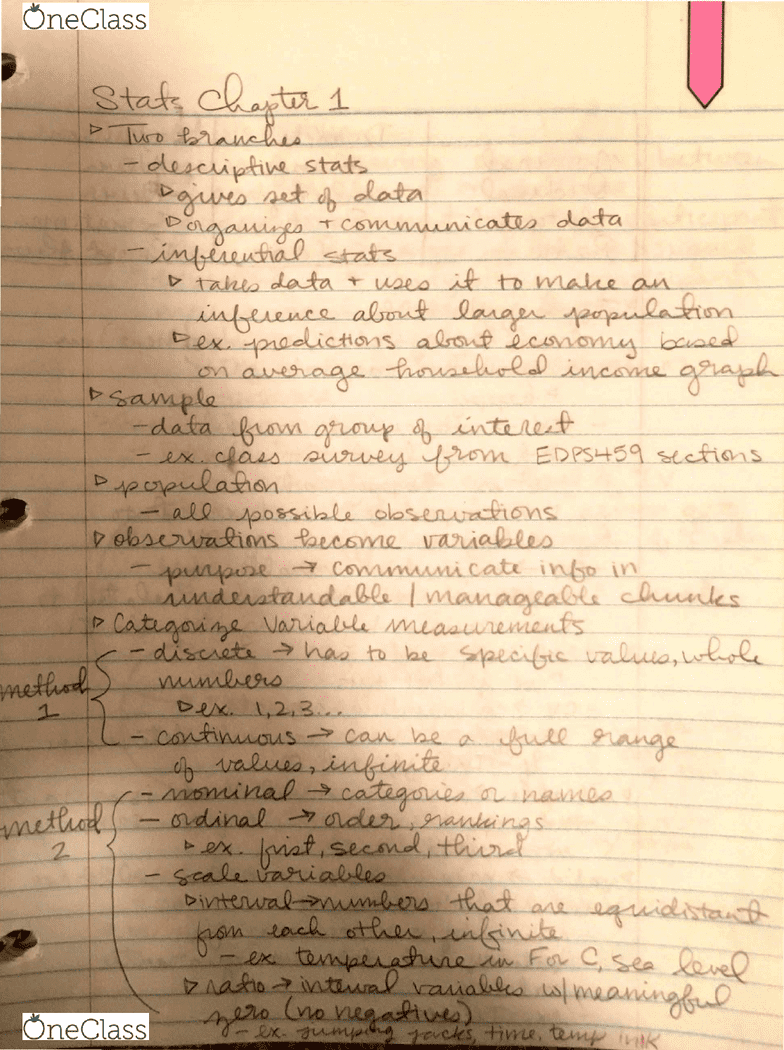 OneClass
Stats Chapter 1
▷ Two branches
- descriptive stats
▷ gives set of data
▷ organizes + communicates data
- inferential stats
▷ takes data + uses it to make an
inference about larger population
▷ ex. predictions about economy based
on average household income graph
▷ sample
- data from group of interest
- ex. class survey from EDPS459 sections
▷ population
- all possible observations
▷ observations become variables
- purpose → communicate info in
understandable / manageable chunks
▷ Categorize Variable measurements
- discrete → has to be specific values, whole
method 1
numbers
▷ ex. 1, 2, 3...
- continuous → can be a full range
of values, infinite
- nominal → categories or names
method 2
- ordinal → order, rankings
▷ ex. first, second, third
- scale variables
▷ interval → numbers that are equidistant
from each other, infinite
- ex temperature in F or C, sea level
▷ ratio → interval variables w/ meaningful
zero (no negatives)
- ex. jumping jacks, time, temp in K
OneClass